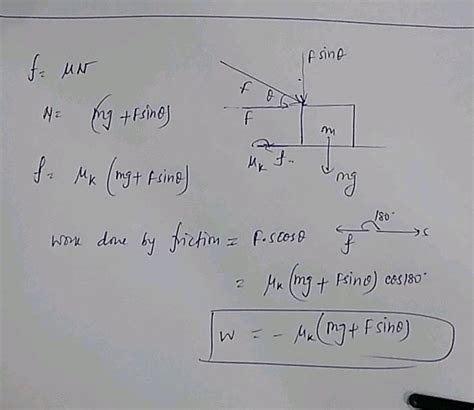 f = μN
N = (mg + Fsinθ)
f = μk (mg + Fsinθ)
Fsinθ
F
θ
F
m
μk f
mg
work done by friction = F.scosθ
180°
f
s
= μk (mg + Fsinθ) cos180°
W = - μk (mg + Fsinθ)